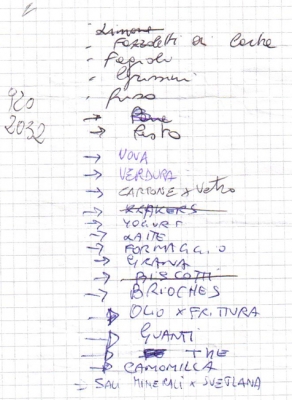 Limone
Fazzoletti di carta
Fagioli
Grissini
Riso
920
Pane
2032
Pesto
UOVA
VERDURA
CARTONE x Vetro
KRAKERS
YOGURT
LATTE
FORMAGGIO
GRANA
BISCOTTI
BRIOCHES
OLIO x FRITTURA
GUANTI
THE
CAMOMILLA
SALI MINERALI x SVETLANA